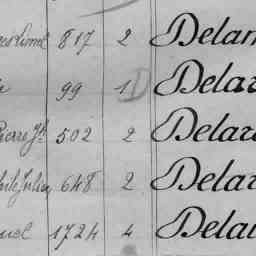 817 2 Delar
99 1 D Delar
Pierre Jh 502 2 Delar
Jules 648 2 Delar
uel 1724 4 Delau